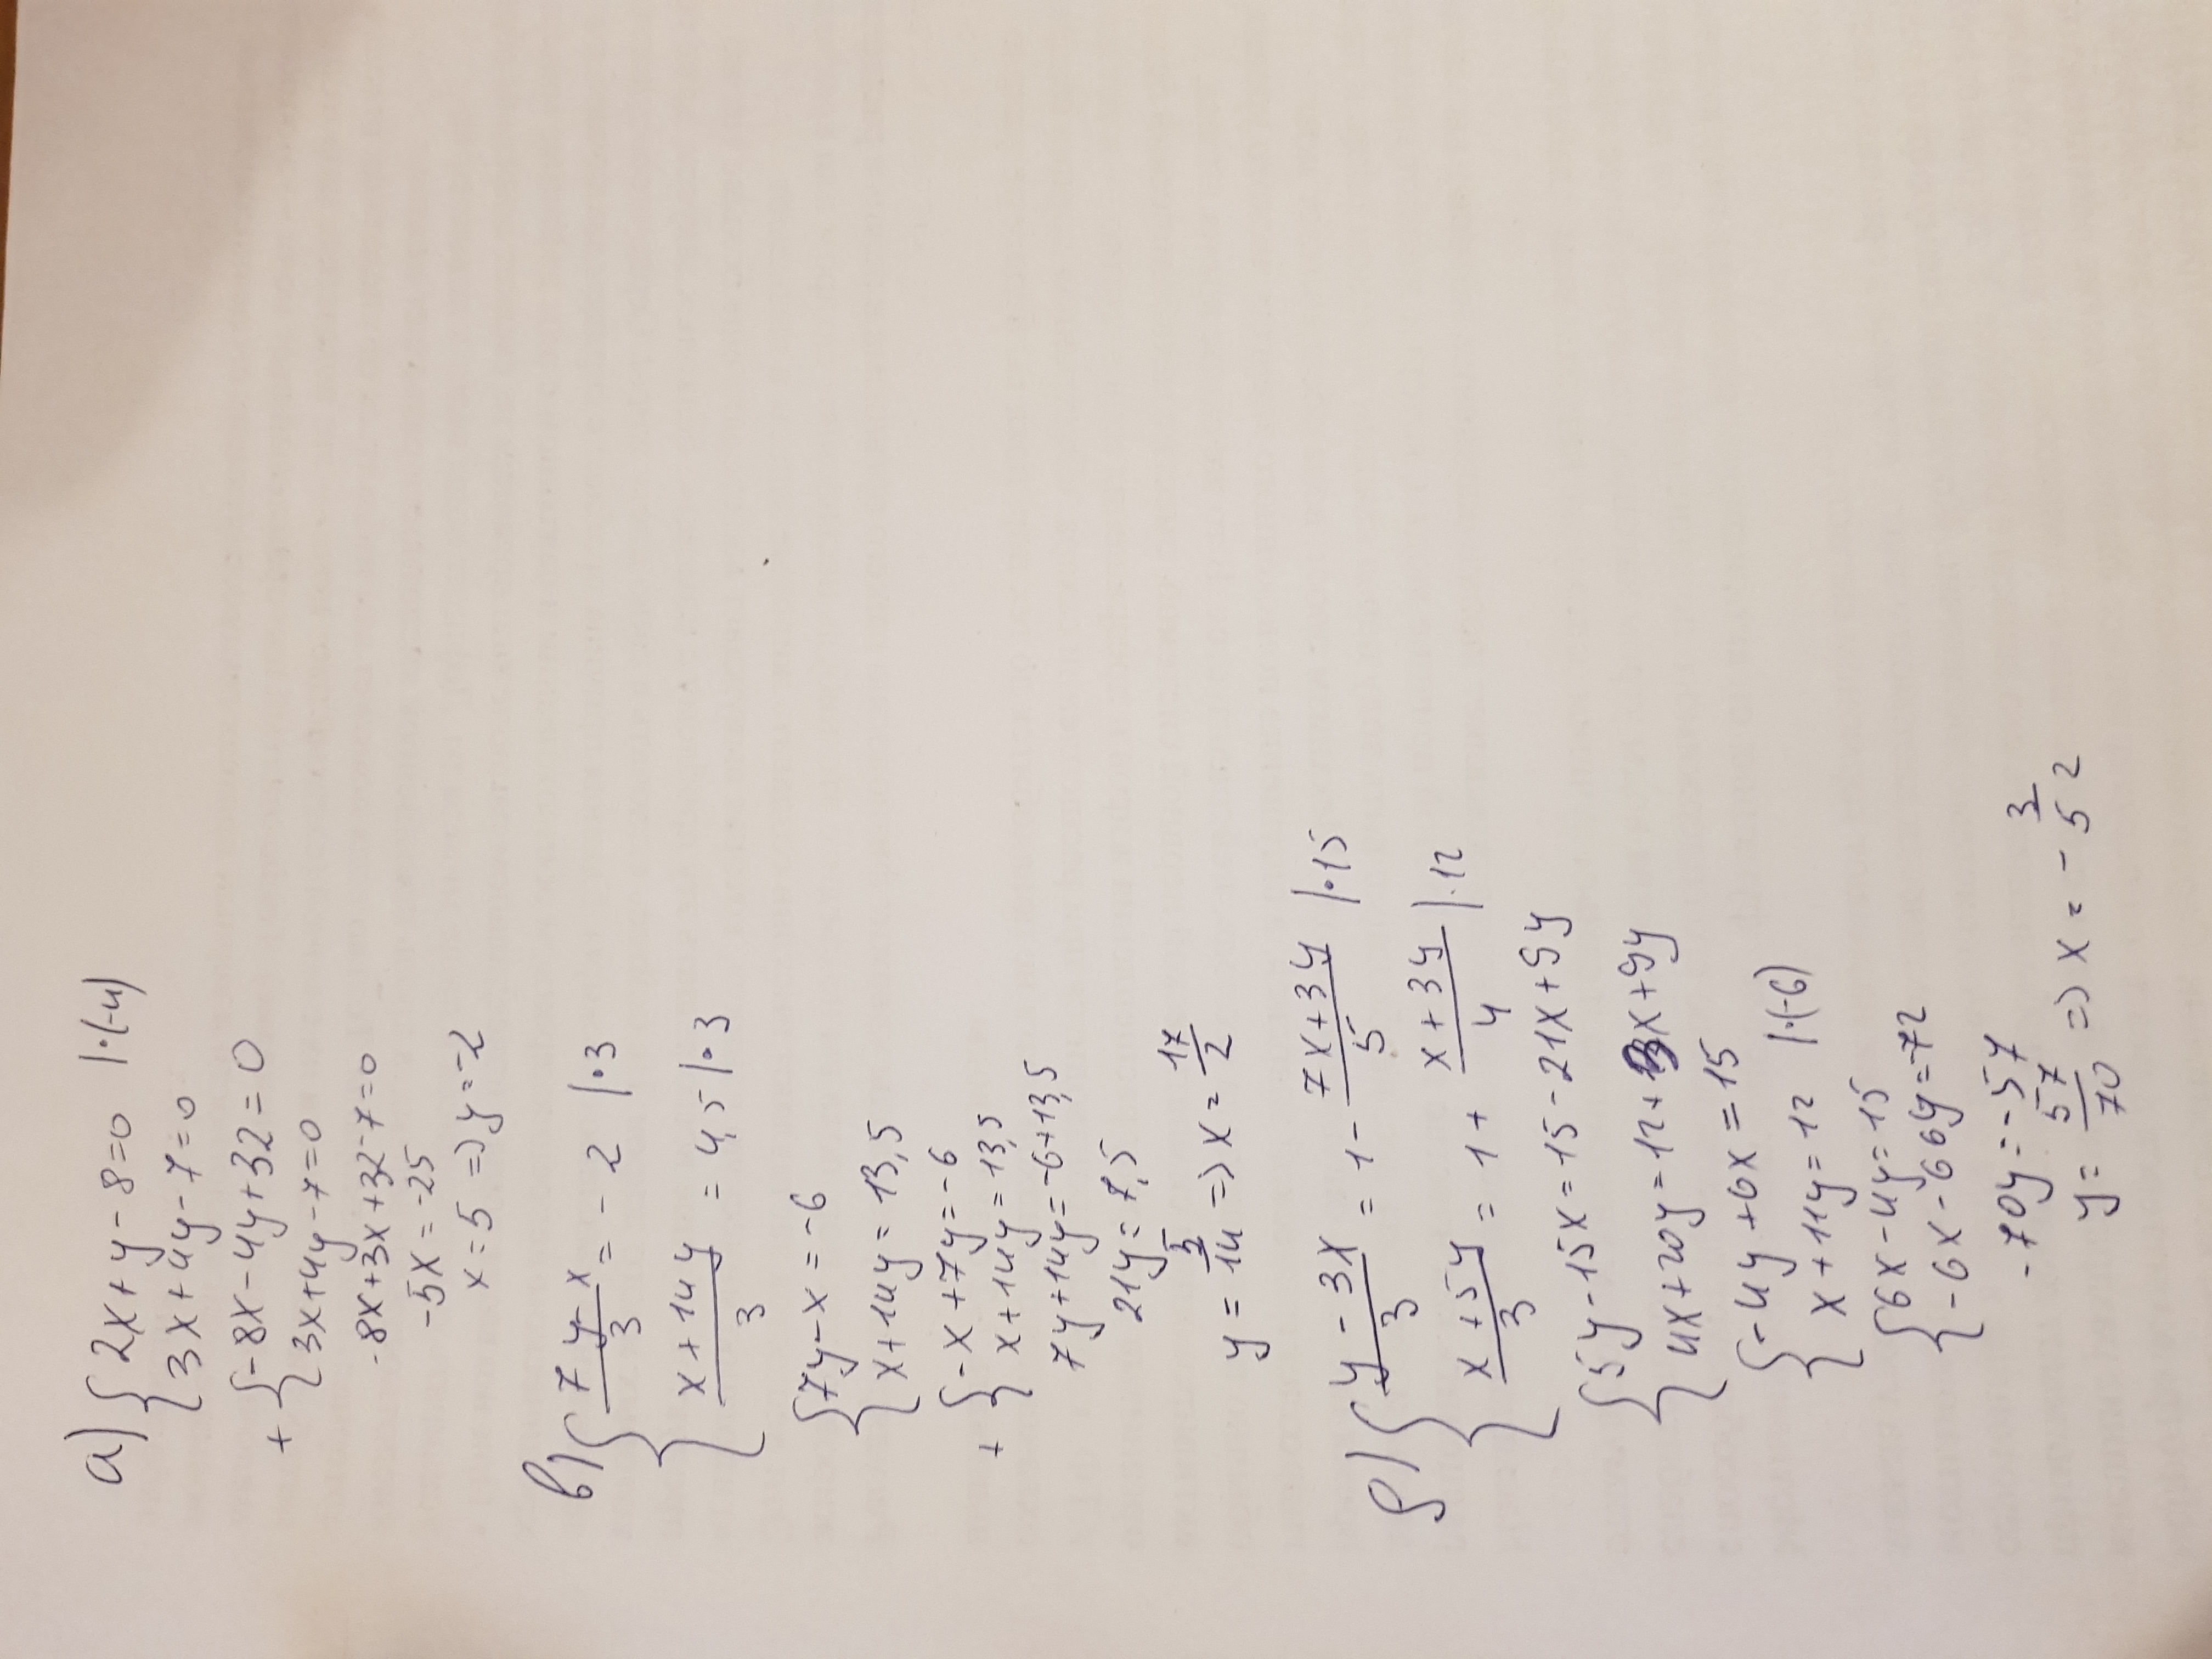 a) { 2x+y-8=0 |·(-4)
3x+4y-7=0
+ { -8x-4y+32=0
3x+4y-7=0
-8x+3x+32-7=0
-5x=-25
x=5 => y=-2
b) { (7y-x)/3 = -2 |·3
(x+14y)/3 = 4,5 |·3
{ 7y-x=-6
x+14y=13,5
+ { -x+7y=-6
x+14y=13,5
7y+14y=-6+13,5
21y=7,5
y=5/14 => x=17/2
{ (y-3x)/3 = 1-(7x+3y)/5 |·15
(x+5y)/3 = 1+(x+3y)/4 |·12
{ 5y-15x=15-21x+9y
4x+20y=12+3x+9y
{ -4y+6x=15
x+11y=12 |·(-6)
{ 6x-4y=15
-6x-66y=-72
-70y=-57
y=57/70 => x=-